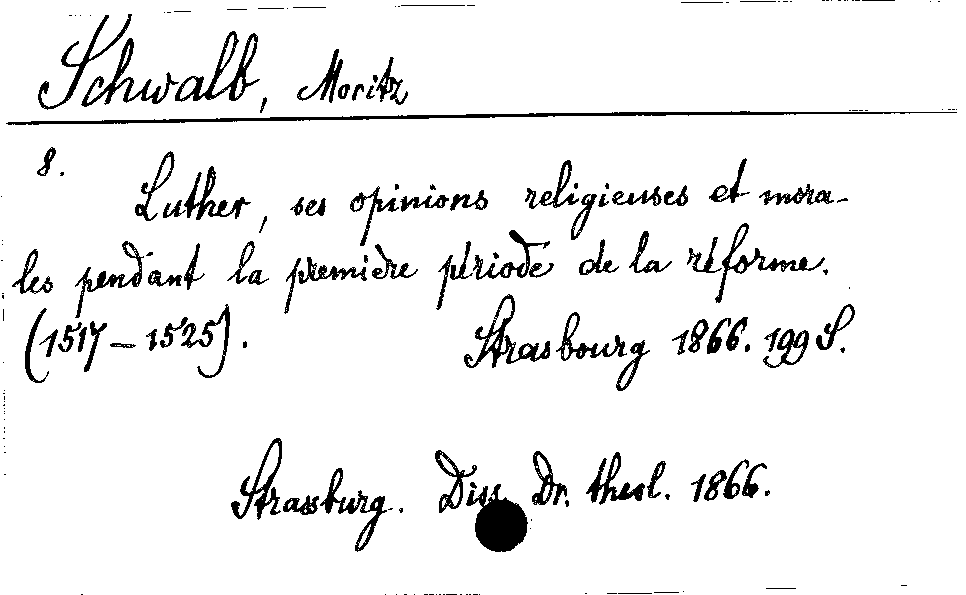 Schwalb, Moritz
8.
Luther, ses opinions religieuses et mora-
les pendant la première période de la réforme.
(1517-1525). Strasbourg 1866. 199 S.
Strassburg. Diss. Dr. theol. 1866.